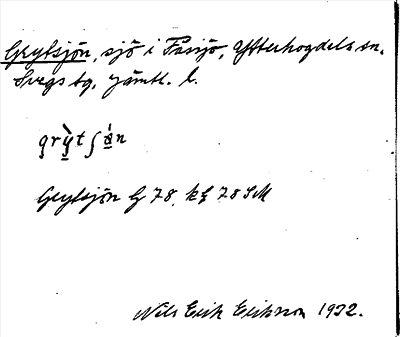 Grytsjön, sjö i Fåssjö, Ytterhogdals sn.
Svegs tg. Jämtl. l.
grỳtʃön
Grytsjön G 78, kf 78 SM
Nils Erik Eriksson 1932.